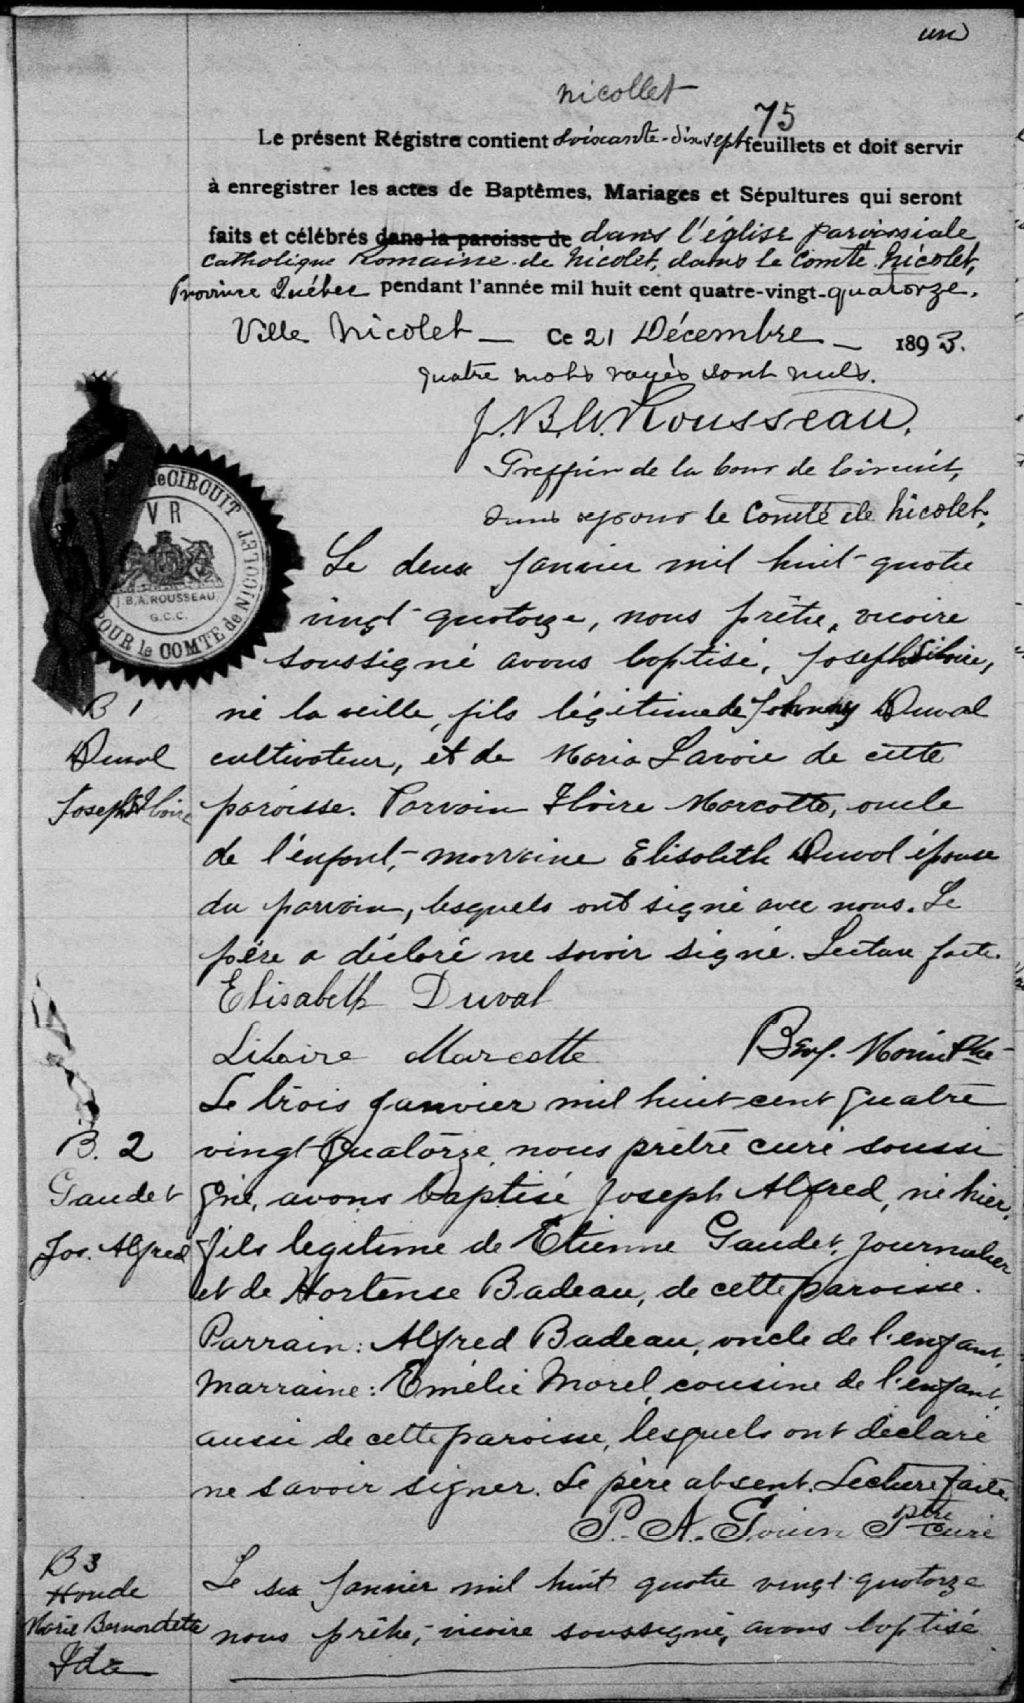 un
nicollet
75
Le présent Régistre contient soixante-dix sept feuillets et doit servir
à enregistrer les actes de Baptêmes, Mariages et Sépultures qui seront
faits et célébrés dans la paroisse de dans l'église paroissiale
catholique Romaine de Nicolet, dans le Comté Nicolet,
Province Québec pendant l'année mil huit cent quatre-vingt-quatorze.
Ville Nicolet — Ce 21 Décembre — 1893.
quatre mots rayés sont nuls.
J.B.A. Rousseau,
Greffier de la Cour de Circuit,
dans et pour le Comté de Nicolet.
de CIRCUIT
POUR le COMTE de NICOLET
V R
J.B.A. ROUSSEAU
G.C.C.
Le deux janvier mil huit quatre
vingt quatorze, nous prêtre, vicaire
soussigné avons baptisé, Joseph Liboire,
B 1
né la veille, fils légitime de Johnny Duval
Duval
cultivateur, et de Maria Lavoie de cette
Joseph Liboire
paroisse. Parrain Liboire Marcotte, oncle
de l'enfant, marraine Elisabeth Duval épouse
du parrain, lesquels ont signé avec nous. Le
père a déclaré ne savoir signé. Lecture faite.
Elisabeth Duval
Liboire Marcotte Benj. Morin Ptre
Le trois janvier mil huit cent quatre
B. 2
vingt quatorze, nous prêtre curé soussi
Gaudet
gné, avons baptisé Joseph Alfred, né hier,
Jos. Alfred
fils legitime de Etienne Gaudet, journalier
et de Hortense Badeau, de cette paroisse.
Parrain: Alfred Badeau, oncle de l'enfant,
Marraine: Emélie Morel, cousine de l'enfant,
aussi de cette paroisse, lesquels ont déclaré
ne savoir signer. Le père absent. Lecture faite.
P. A. Gouin Ptre Curé
B 3
Houde
Marie Bernadette
Ida
Le six janvier mil huit quatre vingt quatorze
nous prêtre, vicaire soussigné, avons baptisé